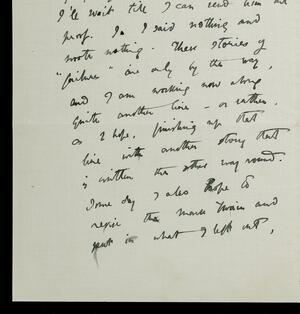 I'll wait till I can send him an
proof. So I said nothing and
wrote nothing. These stories of
"failure" are only by the way,
and I am working now along
quite another line – or rather,
as I hope, finishing up that
line with another story that
is written the other way round.
Some day I also hope to
revise the Mark Twain and
put in what I left out,